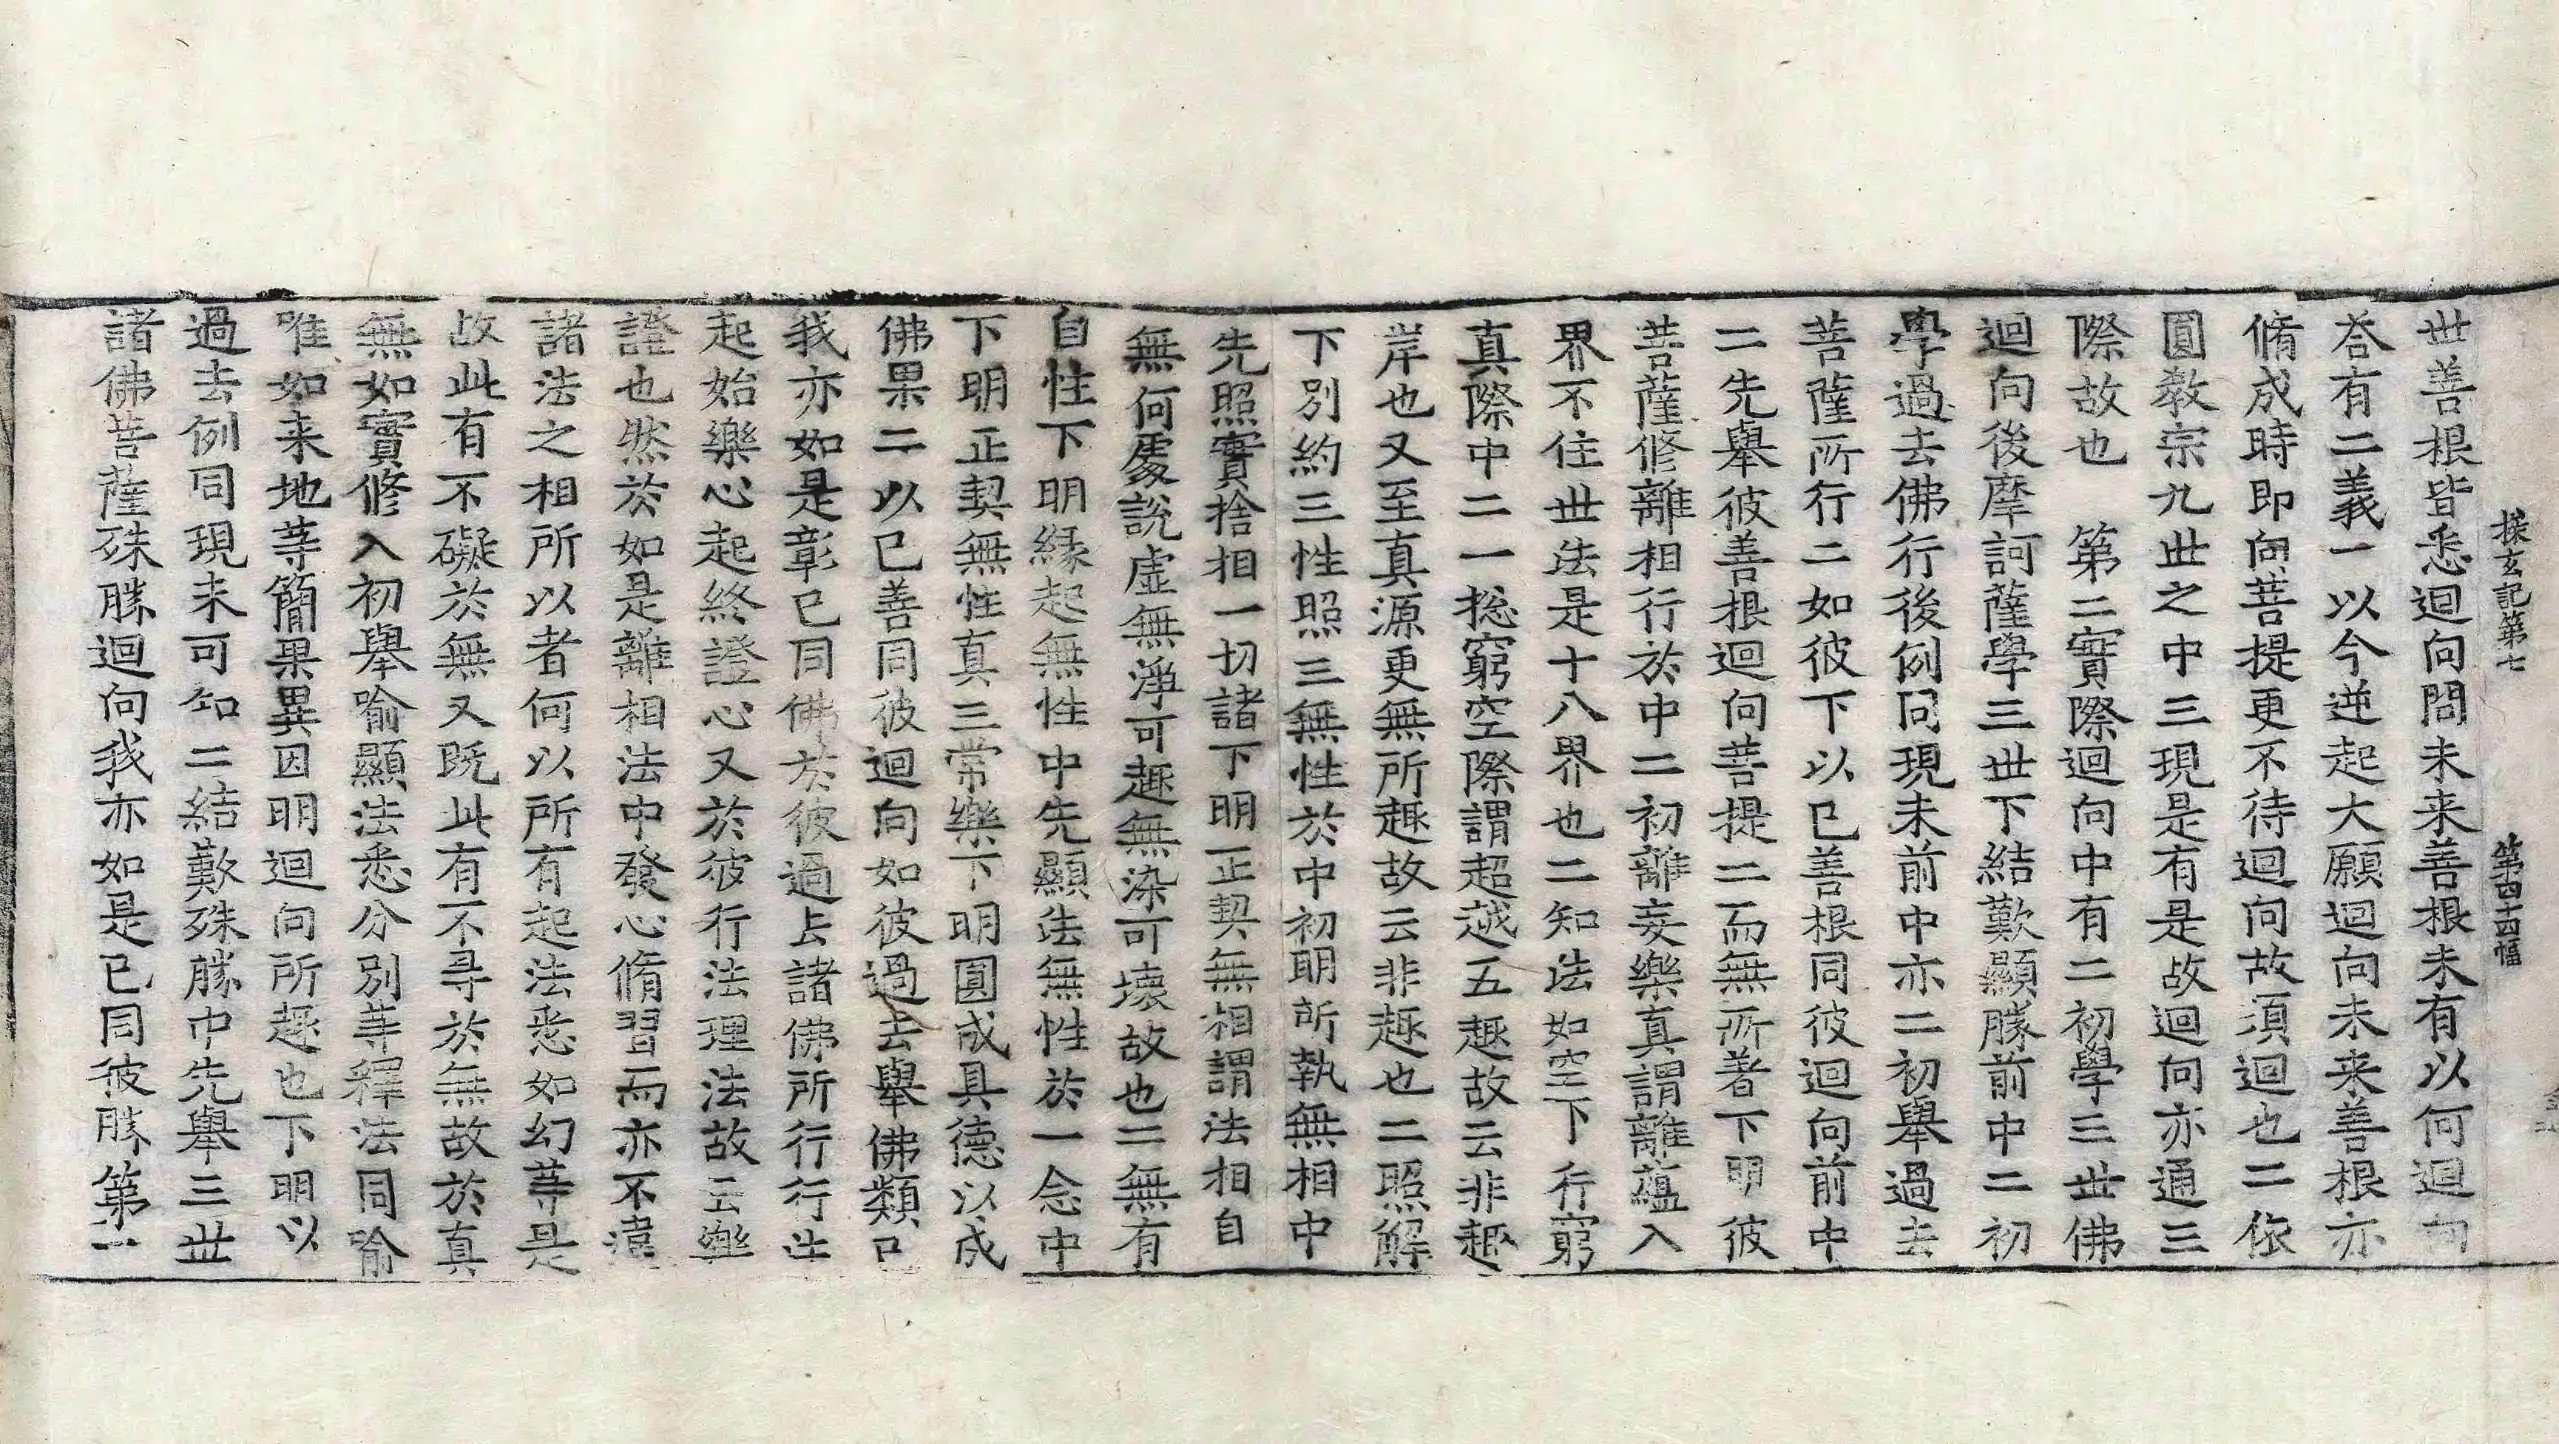 探玄記第七　第四十四幅
世善根皆悉迴向問未来善根未有以何迴向
荅有二義一以今逆起大願迴向未来善根亦
脩成時即向菩提更不待迴向故須迴也二依
圓教宗九世之中三現是有是故迴向亦通三
際故也　第二實際迴向中有二初學三世佛
迴向後摩訶薩學三世下結歎顯勝前中二初
學過去佛行後例同現未前中亦二初舉過去
菩薩所行二如彼下以已善根同彼迴向前中
二先舉彼善根迴向菩提二而無所著下明彼
菩薩修離相行於中二初離妄樂真謂離蘊入
界不住世法是十八界也二知法如空下行窮
真際中二一捴窮空際謂超越五趣故云非趣
岸也又至真源更無所趣故云非趣也二照解
下別約三性照三無性於中初明所執無相中
先照實捨相一切諸下明正契無相謂法相自
無何處說虛無淨可趣無染可壞故也二無有
自性下明縁起無性中先顯法無性於一念中
下明正契無性真三常樂下明圓成具德以成
佛果二以已善同彼迴向如彼過去舉佛類已
我亦如是彰已同佛於彼過去諸佛所行行法
起始樂心起終證心又於彼行法理法故云樂
證也然於如是離相法中發心脩習而亦不違
諸法之相所以者何以所有起法悉如幻等是
故此有不礙於無又既此有不㝵於無故於真
無如實修入初舉喻顯法悉分別等釋法同喻
唯如来地等簡果異因明迴向所趣也下明以
過去例同現未可知二結歎殊勝中先舉三世
諸佛菩薩殊勝迴向我亦如是已同彼勝第一